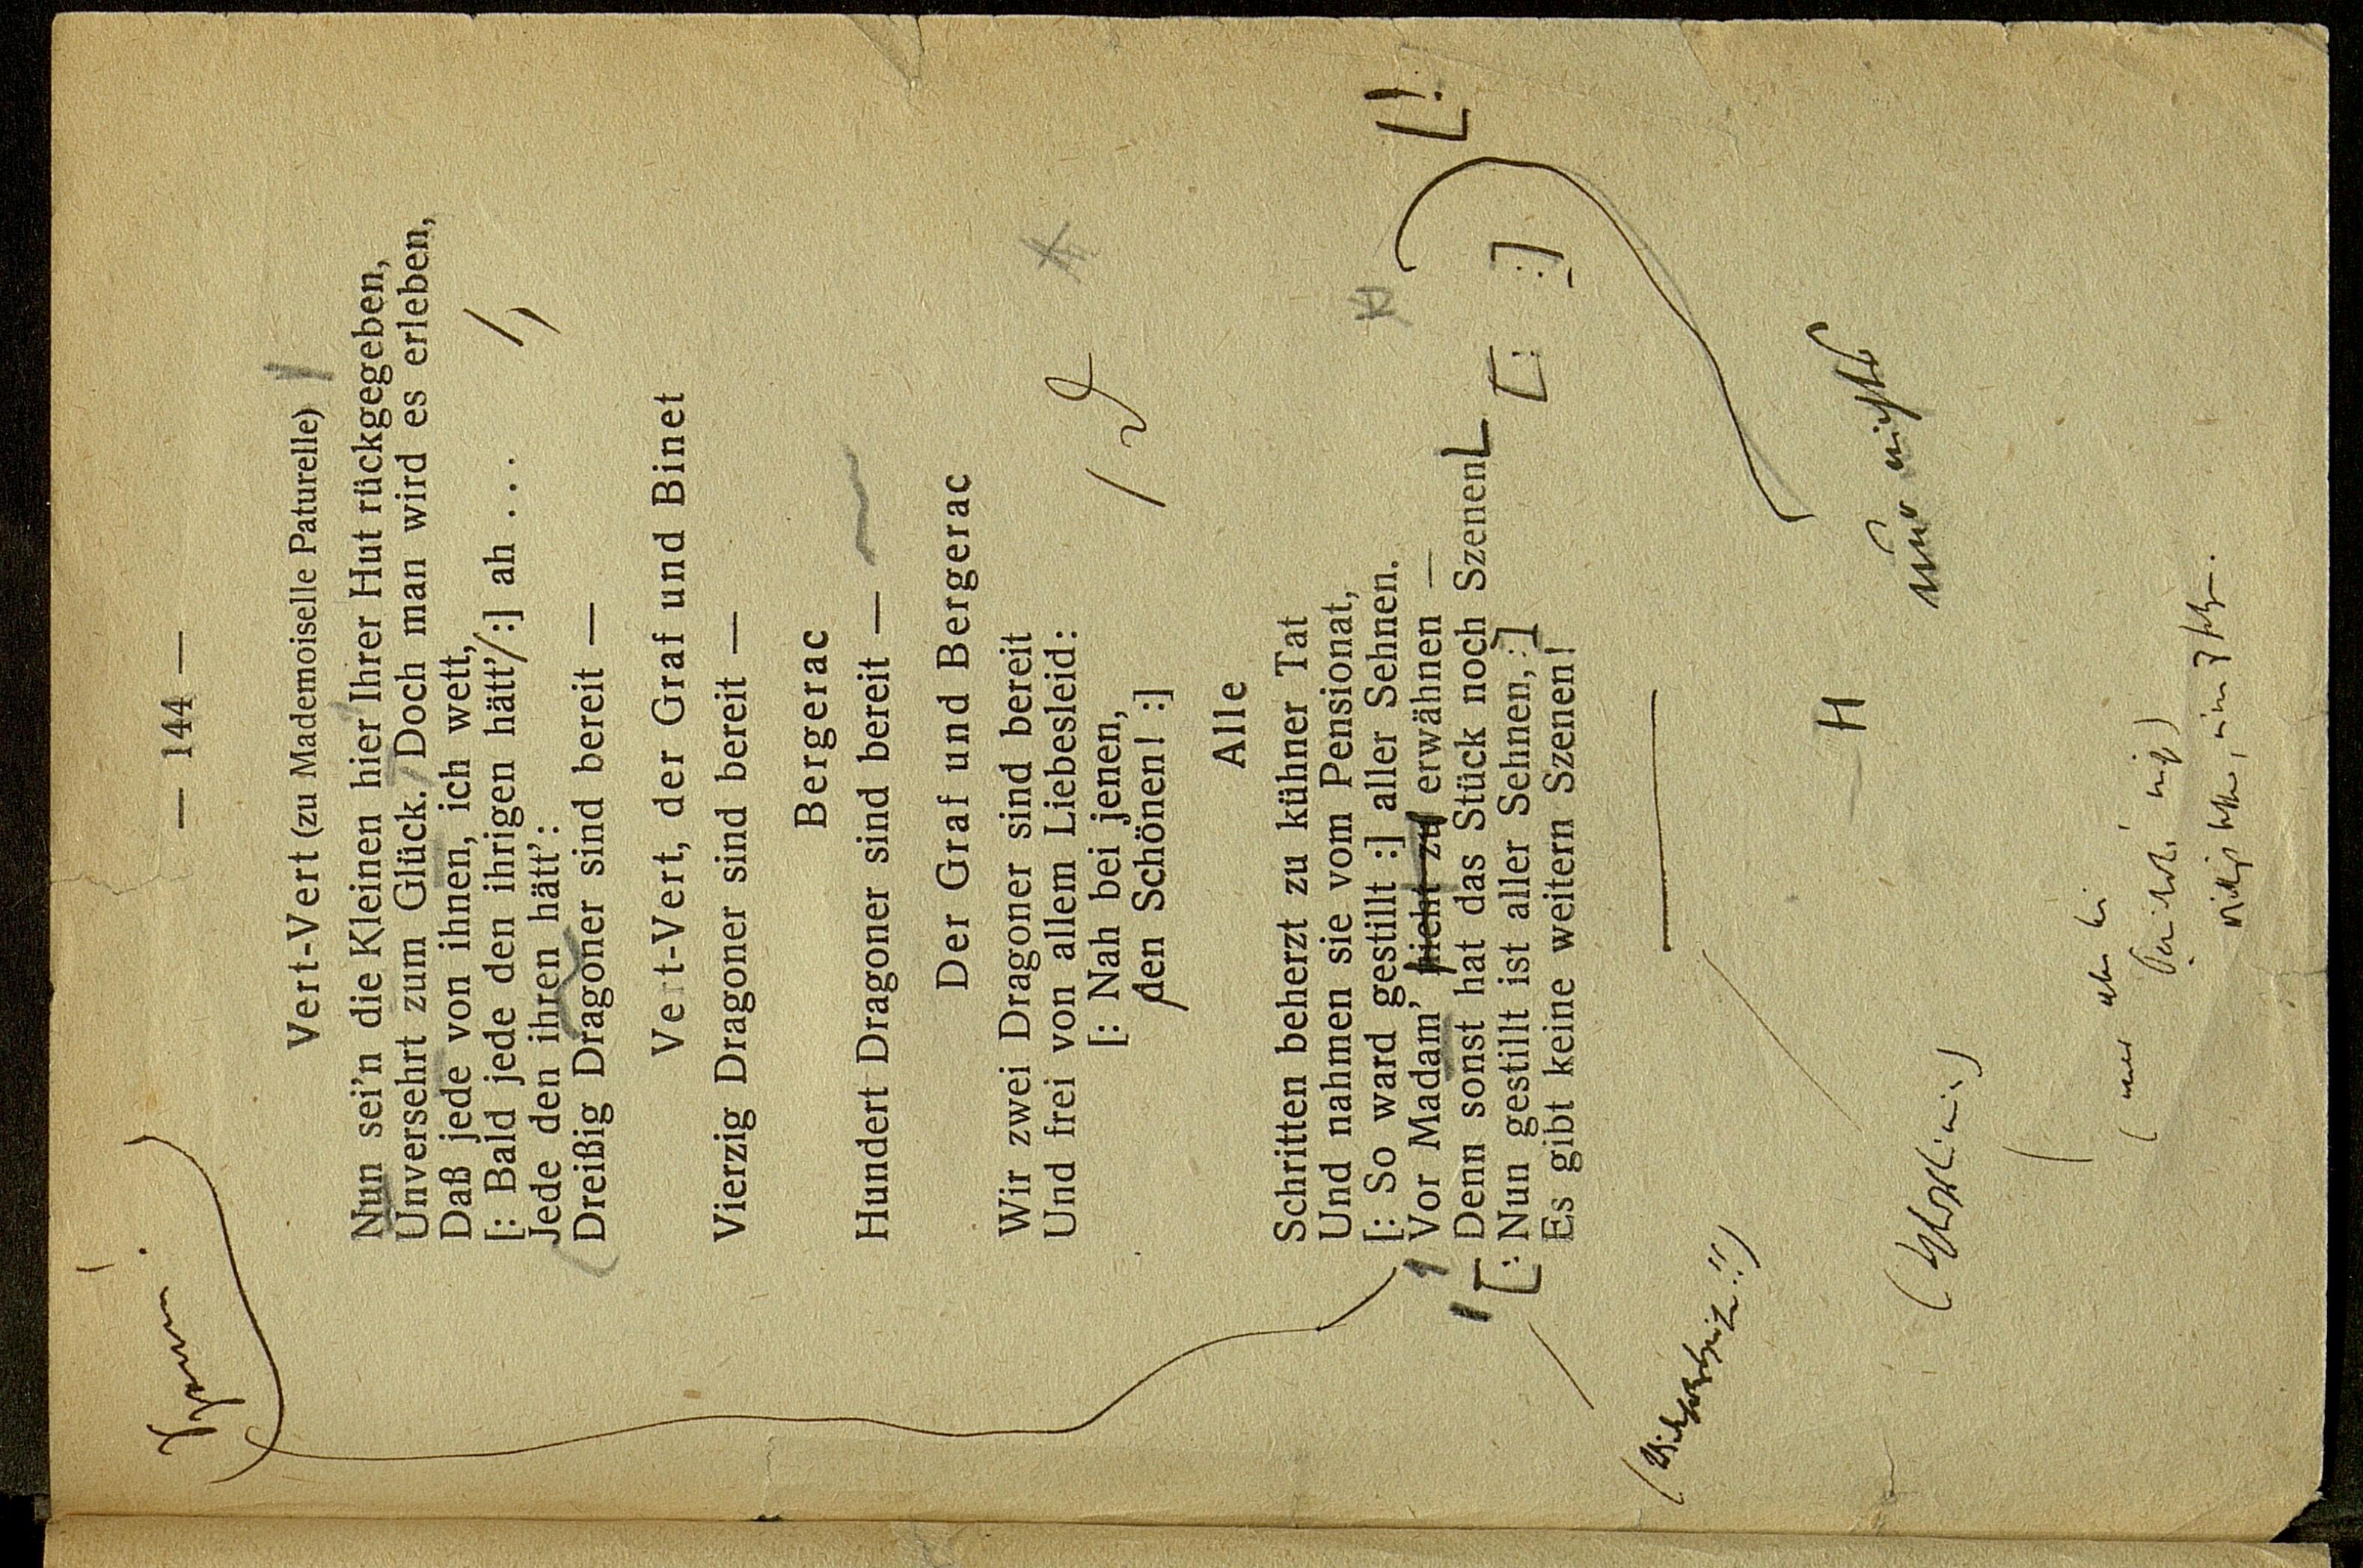 — 144 —
Vert-Vert (zu Mademoiselle Paturelle)
Nun sei'n die Kleinen hier Ihrer Hut rückgegeben,
Unversehrt zum Glück. Doch man wird es erleben,
Daß jede von ihnen, ich wett,
[: Bald jede den ihrigen hätt' :] ah . . .
Jede den ihren hätt':
Dreißig Dragoner sind bereit —
Vert-Vert, der Graf und Binet
Vierzig Dragoner sind bereit —
Bergerac
Hundert Dragoner sind bereit —
Der Graf und Bergerac
Wir zwei Dragoner sind bereit
Und frei von allem Liebesleid:
[: Nah bei jenen,
den Schönen! :]
Alle
Schritten beherzt zu kühner Tat
Und nahmen sie vom Pensionat,
[: So ward gestillt :] aller Sehnen.
Vor Madam' nicht zu erwähnen —
Denn sonst hat das Stück noch Szenen
[: Nun gestillt ist aller Sehnen, :]
Es gibt keine weitern Szenen!
[: :]
H
nur nicht